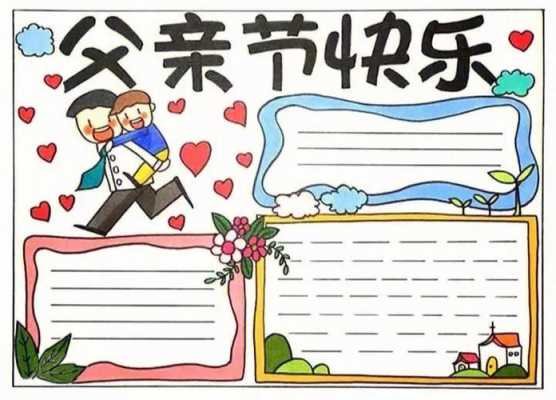 父亲节快乐